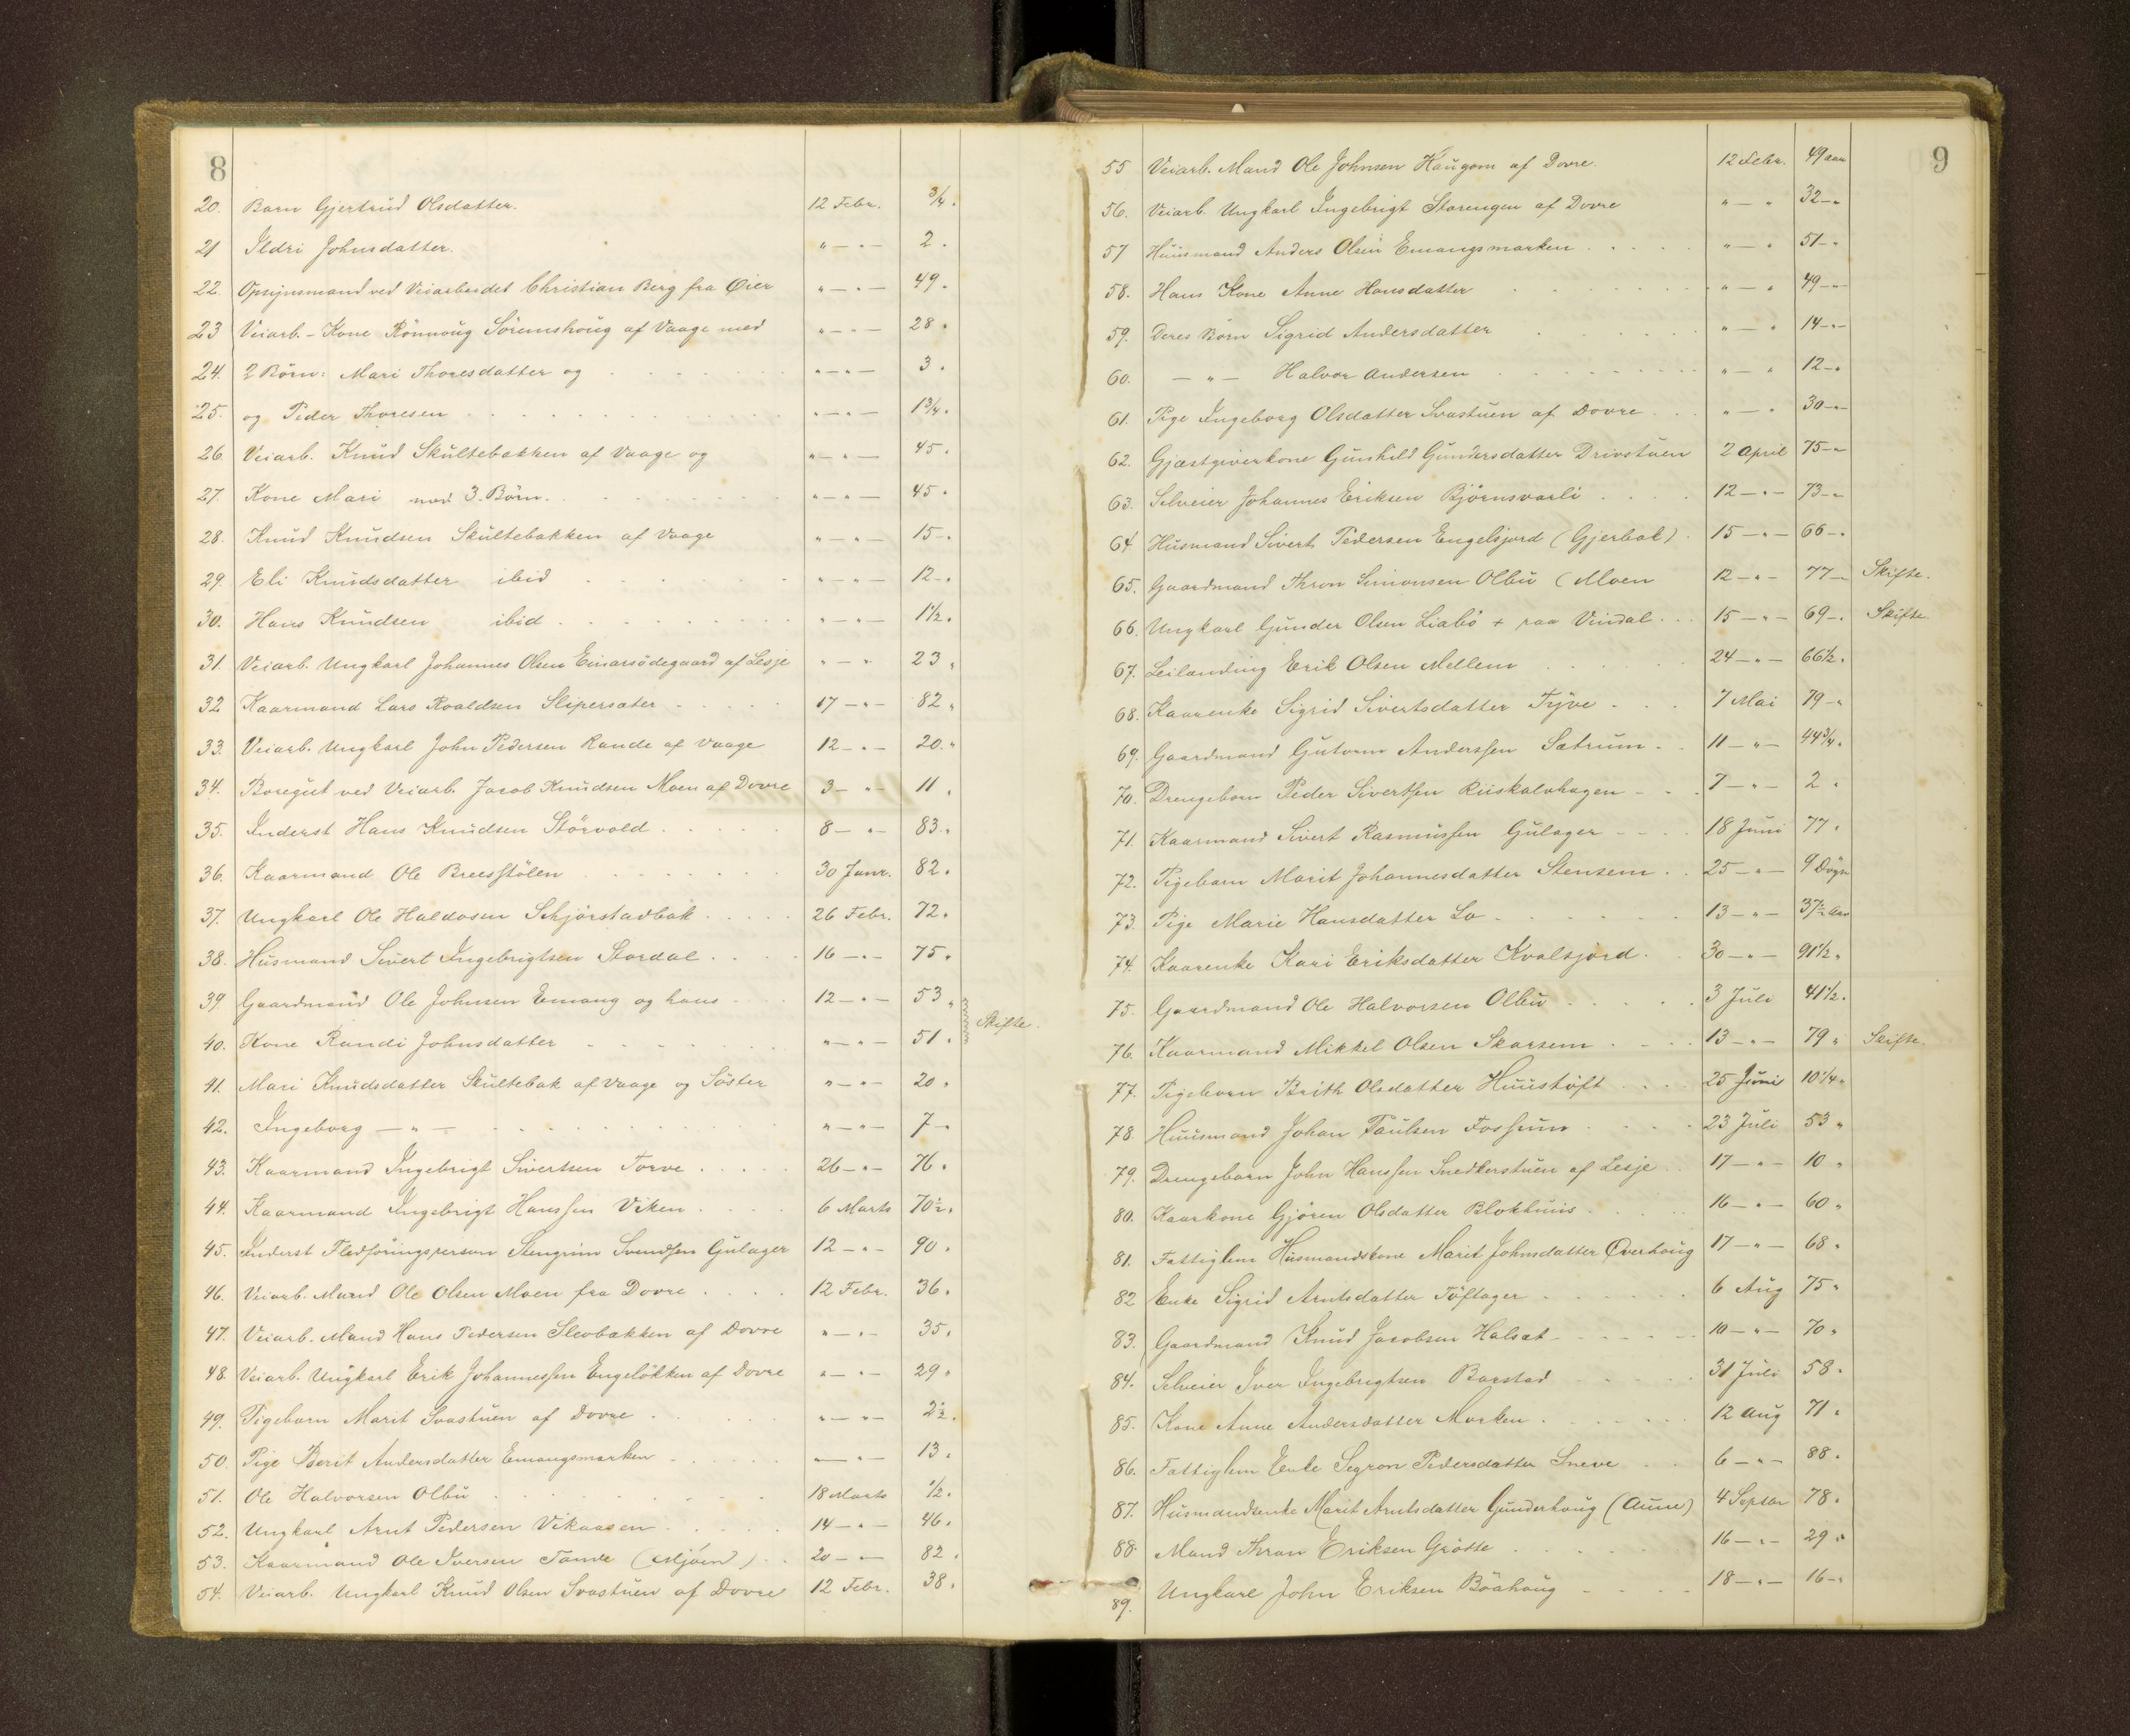 8
20. Barn Gjertrud Olsdatter. 12 Febr. 3/4 "
21 Ildri Johnsdatter. " — " — 2 "
22. Opsynsmand ved Veiarbeidet Christian Berg fra Øier " — " — 49 "
23 Veiarb. - Kone Rönnoug Söremshoug af Vaage med " — " — 28 "
24. 2 Börn: Mari Thoresdatter og " — " — 3 "
25. og Peder Thoresen " — " — 1 3/4 "
26. Veiarb. Knud Skultebakken af Vaage og " — " — 45 "
27. Kone Mari med 3. Börn. " — " — 45 "
28. Knud Knudsen Skultebakken af Vaage " — " — 15 — "
29. Eli Knudsdatter ibid " — " — 12 — "
30. Hans Knudsen ibid " — " — 1 1/2 "
31. Veiarb. Ungkarl Johannes Olsen Einarsödegaard af Lesje " — " 23 "
32 Kaarmand Lars Roaldsen Slipersæter 17 — " — 82 "
33. Veiarb. Ungkarl John Pedersen Rande af Vaage 12 — " — 20. "
34. Boregut ved Veiarb. Jacob Knudsen Moen af Dovre 3 — " — 11 "
35. Inderst Hans Knudsen Störvold 8 — " — 83 "
36. Kaarmand Ole Breesstölen 30 Janr. 82 "
37. Ungkarl Ole Haldosen Schjörstadbak 26 Febr. 72 "
38. Husmand Sivert Ingebrigtsen Stordal 16 — " — 75 "
39. Gaardmand Ole Johnsen Emang og hans 12 — " — 53 "
Skifte.
40. Kone Randi Johnsdatter " — " — 51 "
41. Mari Knudsdatter Skultebak af Vaage og Söster " — " — 20 "
42. Ingeborg — " — " — " — 7 — "
43. Kaarmand Ingebrigt Sivertsen Torve 26 — " — 76 "
44. Kaarmand Ingebrigt Hanssen Viken 6 Marts 70 1/2 "
45. Inderst Fledföringsperson Stengrim Svendsen Gulager 12 — " — 90 "
46. Veiarb. Mand Ole Olsen Moen fra Dovre 12 Febr. 36 "
47. Veiarb. Mand Hans Pedersen Slevbakken af Dovre " — " — 35 "
48. Veiarb. Ungkarl Erik Johannessen Engelökken af Dovre " — " — 29 "
49. Pigebarn Marit Svastuen af Dovre " — " — 2 1/2 "
50. Pige Berit Andersdatter Emangsmarken — " — 13 "
51. Ole Halvorsen Olbu 18 Marts 1/2 "
52. Ungkarl Arnt Pedersen Vikaasen 14 — " — 46 "
53. Kaarmand Ole Iversen Tande (Mjöen) 20 — " — 82 "
54. Veiarb. Ungkarl Knud Olsen Svastuen af Dovre 12 Febr. 38 "
9
55 Veiarb. Mand Ole Johnsen Haugom af Dovre. 12 Febr. 49 aar
56. Veiarb. Ungkarl Ingebrigt Storengen af Dovre " — " 32 — "
57 Huusmand Anders Olsen Emangsmarken " — " 51 — "
58. Hans Kone Anne Hansdatter " — " 49 — "
59. Deres Börn Sigrid Andersdatter " — " 14 — "
60. — " — Halvor Andersen " — " 12 — "
61. Pige Ingeborg Olsdatter Svastuen af Dovre " — " 30 — "
62. Gjæstgiverkone Gunhild Gundersdatter Drivstuen 2 April 75 — "
63. Selveier Johannes Eriksen Björnsvarli 12 — " — 73 — "
64 Husmand Sivert Pedersen Engelsjord (Gjerbak) 15 — " — 66 — "
65. Gaardmand Thron Simonsen Olbu (Moen 12 — " — 77 — Skifte.
66. Ungkarl Gunder Olsen Liabö + paa Vindal 15 — " — 69 — " Skifte
67. Leilænding Erik Olsen Mellem 24 — " — 66 1/2 "
68. Kaarenke Sigrid Sivertsdatter Tyve 7 Mai 79 — "
69. Gaardmand Gutorm Anderssen Sætrum 11 — " — 44 3/4 "
70. Drengebarn Peder Sivertsen Riiskalvhagen 7 — " — 2 "
71. Kaarmand Sivert Rasmussen Gulager 18 Juni 77 "
72. Pigebarn Marit Johannesdatter Stensem 25 — " — 9 Dögn
73. Pige Marie Hansdatter Lo 13 — " — 37 1/2 aar
74. Kaarenke Kari Eriksdatter Kvalsjord 30 — " — 91 1/2 "
75. Gaardmand Ole Halvorsen Olbu 3 Juli 41 1/2 "
76. Kaarmand Mikkel Olsen Skarsem 13 — " — 79 " Skifte.
77. Pigebarn Brith Olsdatter Huustöft 25 Juni 10 1/4 "
78. Huusmand Johan Paulsen Fossum 23 Juli 53 "
79. Drengebarn John Hanssen Snedkerstuen af Lesje 17 — " — 10 "
80. Kaarkone Gjören Olsdatter Blokhuus 16 — " — 60 "
81. Fattiglem Husmandskone Marit Johnsdatter Overhoug 17 — " — 68 "
82 Enke Sigrid Arntsdatter Töftager 6 Aug 75 "
83. Gaardmand Knud Jacobsen Halset 10 — " — 70 "
84. Selveier Iver Ingebrigtsen Barstad 31 Juli 58 "
85. Kone Anne Andersdatter Morken 12 Aug 71 "
86. Fattiglem Enke Segron Pedersdatter Sneve 6 — " — 88 "
87. Husmandsenke Marit Arntsdatter Gunderhoug (Aune) 4 Septbr 78 "
88. Mand Thron Eriksen Grötte 16 — " — 29 "
89. Ungkarl John Eriksen Böahoug 18 — " — 16 — "